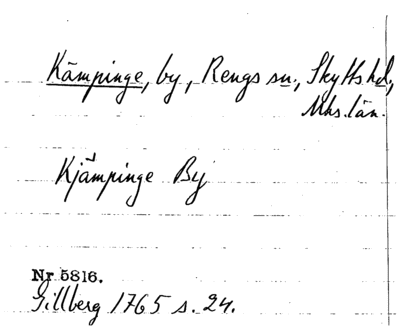 Kämpinge, by, Rengs sn., Skytts hd.,
Mhs. län.
Kjämpinge By
Nr 5816.
Gillberg 1765 s. 24.